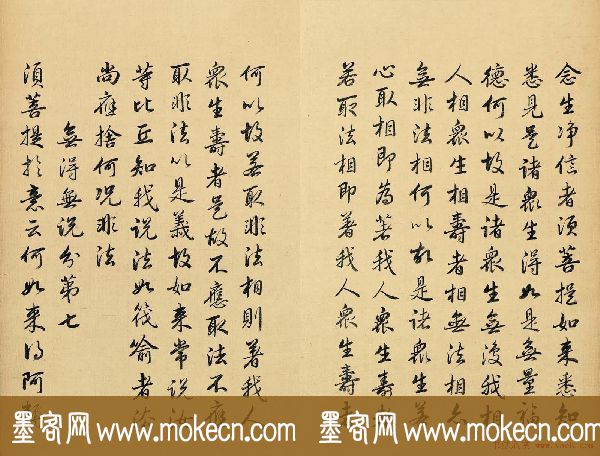 念生净信者須菩提如来悉知
悉見是諸衆生得如是無量福
德何以故是諸衆生無復我相
人相衆生相壽者相無法相亦
無非法相何以故是諸衆生若
心取相即為著我人衆生壽者
若取法相即著我人衆生壽者
何以故若取非法相則著我人
衆生壽者是故不應取法不應
取非法以是義故如来常説汝
等比丘知我説法如筏喻者法
尚應捨何况非法
無得無説分第七
須菩提於意云何如来得阿耨
墨客网 www.mokecn.com 墨客网 www.mokecn.com